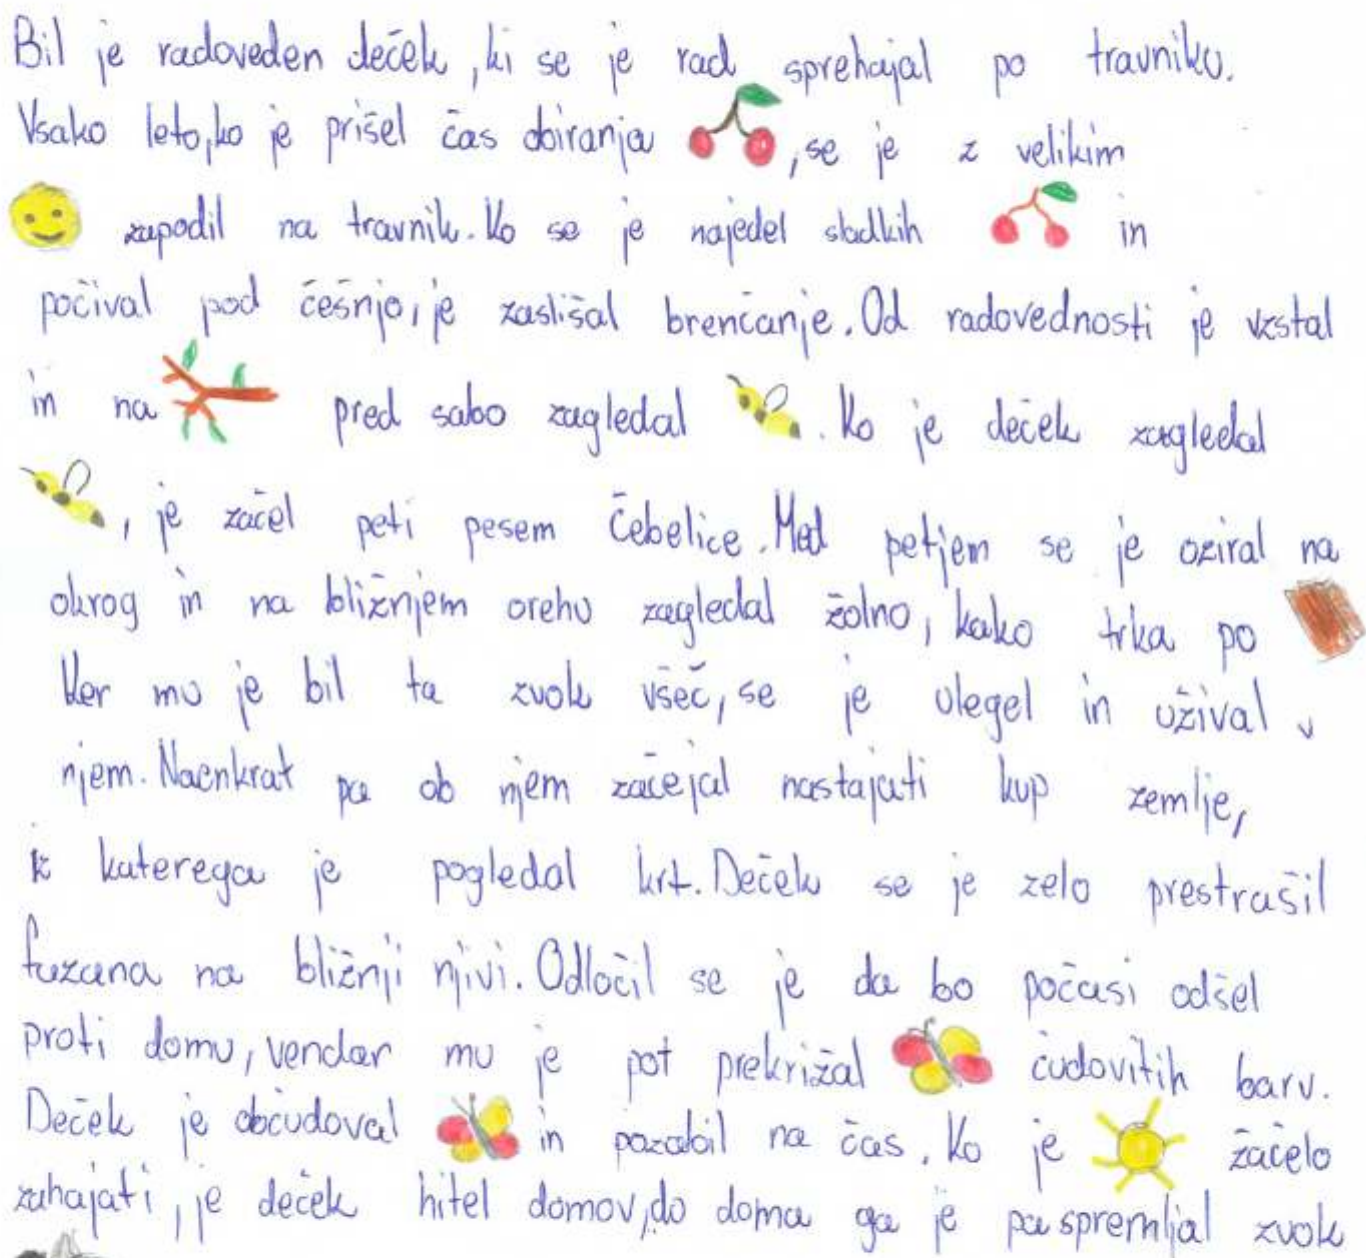 Bil je radoveden deček, ki se je rad sprehajal po travniku.
Vsako leto, ko je prišel čas obiranja , se je z velikim
zapodil na travnik. Ko se je najedel sladkih in
počival pod češnjo, je zaslišal brenčanje. Od radovednosti je vzstal
in na pred sabo zagledal . Ko je deček zagledal
, je začel peti pesem Čebelice. Med petjem se je oziral na
okrog in na bližnjem orehu zagledal žolno, kako trka po
Ker mu je bil ta zvok všeč, se je ulegel in užival v
njem. Naenkrat pa ob njem začejal nastajati kup zemlje,
iz katerega je pogledal krt. Deček se je zelo prestrašil
fazana na bližnji njivi. Odločil se je da bo počasi odšel
proti domu, vendar mu je pot prekrižal čudovitih barv.
Deček je občudoval in pozabil na čas. Ko je začelo
zahajati, je deček hitel domov, do doma ga je pa spremljal zvok